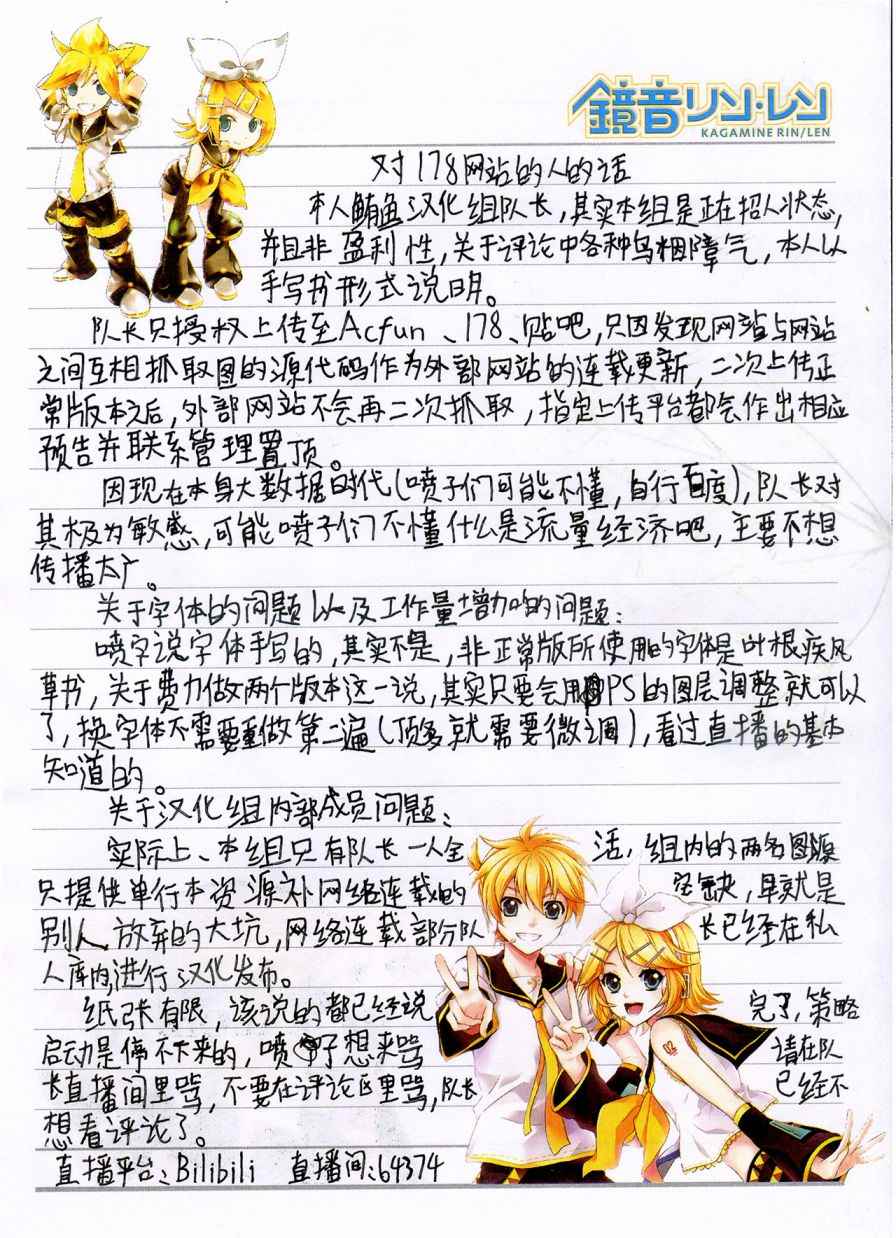 鏡音リン・レン
KAGAMINE RIN/LEN
对178网站的人的话
本人鲔鱼汉化组队长,其实本组是正在招人状态,
并且非盈利性,关于评论中各种乌烟障气,本人以
手写书形式说明。
队长只授权上传至Acfun、178、贴吧,只因发现网站与网站
之间互相抓取图的源代码作为外部网站的连载更新,二次上传正
常版本之后,外部网站不会再二次抓取,指定上传平台都会作出相应
预告并联系管理置顶。
因现在本身大数据时代(喷子们可能不懂,自行百度),队长对
其极为敏感,可能喷子们不懂什么是流量经济吧,主要不想
传播太广。
关于字体的问题以及工作量增加的问题:
喷字说字体手写的,其实不是,非正常版所使用的字体是叶根疾风
草书,关于费力做两个版本这一说,其实只要会用PS的图层调整就可以
了,换字体不需要重做第二遍(顶多就需要微调),看过直播的基本
知道的。
关于汉化组内部成员问题:
实际上、本组只有队长一人全活,组内的两名图源
只提供单行本资源补网络连载的空缺,早就是
别人放弃的大坑,网络连载部分队长已经在私
人库内进行汉化发布。
纸张有限,该说的都已经说完了,策略
启动是停不下来的,喷子想来骂请在队
长直播间里骂,不要在评论区里骂,队长已经不
想看评论了。
直播平台:Bilibili 直播间:64374
02